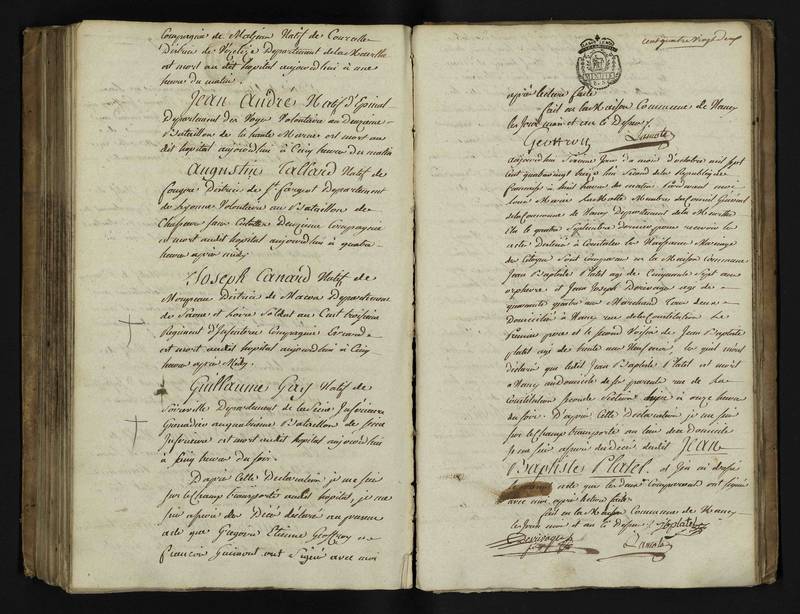 Compagnie de Natif de Courcelle
District de Vezelize Departement de la Meurthe
est mort au dit hopital aujourd'hui à une
heure du matin.
Jean André Natif d'Epinal
Departement des Voges Volontaire au Deuzieme
Bataillon de la haute Marne est mort au
dit hopital aujourd'hui à Cinq heures du matin
Augustin Tallard Natif de
District de St fargeot Departement
de Volontaire au Bataillon de
Chasseur Sans Culotte Deuzieme Compagnie
est mort audit hopital aujourd'hui à quatre
heures après midy
Joseph Canard Natif de
District de Macon Departement
de Saone et Loire Soldat au Cent troisieme
Regiment d'Infanterie Compagnie
est mort audit hopital aujourd'hui à Cinq
heures après Midy
Guillaume Natif de
Departement de la Seine Inferieure
Grenadier au Bataillon de Seine
Inferieure est mort audit hopital aujourd'hui
à Cinq heures du soir
D'après Cette Declaration je me suis
sur le Champ transporté audit hopital, je me
suis assuré du Décé déclaré au présent
acte que Gregoire Etienne Geoffroy et
François Guimont ont signé avec moi
cent quatre vingt
après lecture faite
fait en la Maison Commune de Nancy
les Jour, mois et an le Dessus
Geoffroy Lamotte
aujourd'hui Jour du mois d'octobre mil sept
cent quatrevingt treize l'an Second de la Republique
francaise à huit heures du matin Pardevant moi
Louis Lamotte Membre du Conseil General
de la Commune de Nancy Departement de la Meurthe
Elu le quatre Septembre dernier pour recevoir les
acte Destiné à Constater les Naissance Mariage
des Citoyen Sont comparu en la Maison Commune
Jean Baptiste Platel agé de Cinquante Sept ans
orphevre et Jean Joseph agé de
quarante quatre ans Marchand tous deux
Domicilié à Nancy rue de la Constitution Le
Premier pere et le second Voisin de Jean Baptiste
platel agé de trente ans lequel m'ont
déclaré que ledit Jean Baptiste Platel est mort
à Nancy au domicile de ses parents rue de La
Constitution Section à onze heures
du soir. D'après Cette Déclaration je me suis
sur le Champ transporté au lieu du Domicile
je me suis assuré du décé dudit Jean
Baptiste Platel. et j'en ai dressé
le present acte que les deux Comparant ont signés
avec moi après lecture faite
fait en la Maison Commune de Nancy
les Jour mois et an le Dessus Jbplatel
Lamotte